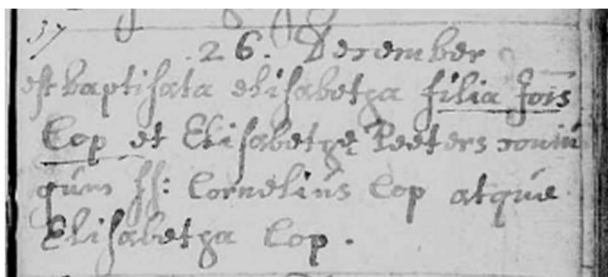 37
26. December
est baptisata elisabetha filia Jois
Cop et Elisabethę Peeters coniu
gum ss: Cornelius Cop atque
Elisabetha Cop.